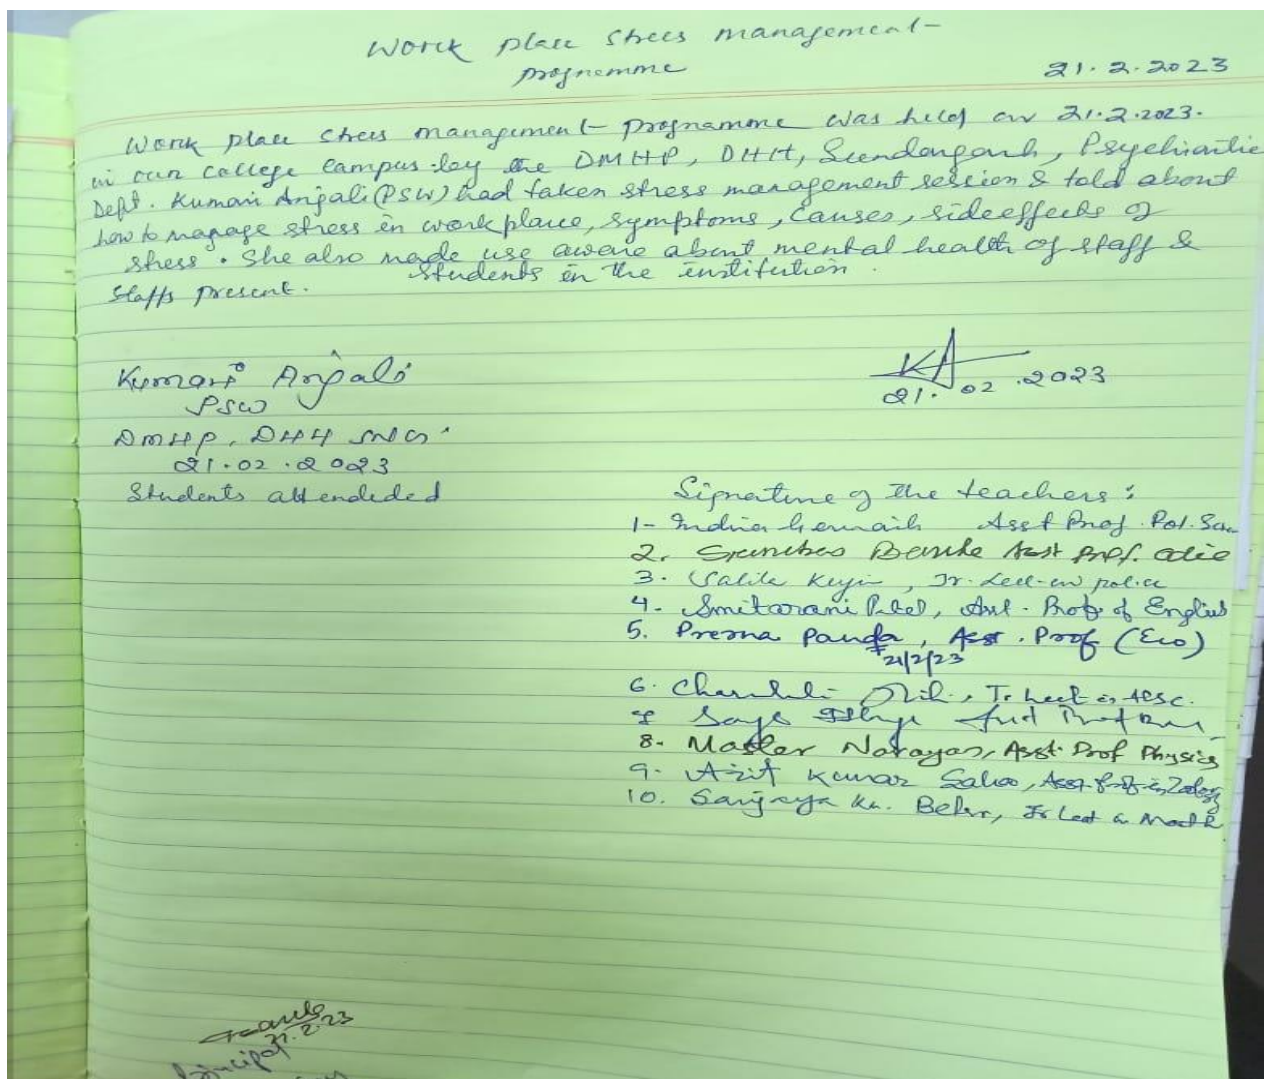 Work place strees management-
prognemme
21.2.2023
Work place strees management- prognamme was held on 21.2.2023.
in our college campus by the DMHP, DHH, Sundargarh, Psychiartic
Dept. Kumari Anjali (PSW) had taken stress management session & told about
how to manage stress in work place, symptoms, causes, sideeffects of
stress. She also made use aware about mental health of staff &
students in the institution.
Staffs present.
Kumari Anjali
PSW
DMHP, DHH SNG.
21.02.2023
KA
21.02.2023
Students attendeded
Signature of the teachers:
1- Asst Prof. Pol. Sc.
2. Asst Prof. Odia
3. Jr. Lect-in
4. Smitarani Patel, Asst. Prof of English
5. Prerna Panda, Asst. Prof (Eco)
21/2/23
6. Jr. Lect in
8. Narayan, Asst. Prof Physics
9. Ajit Kumar Sahoo, Asst. Prof in Zoology
10. Sanjaya Ku. Behera, Jr Lect in Math
21.2.23
Principal